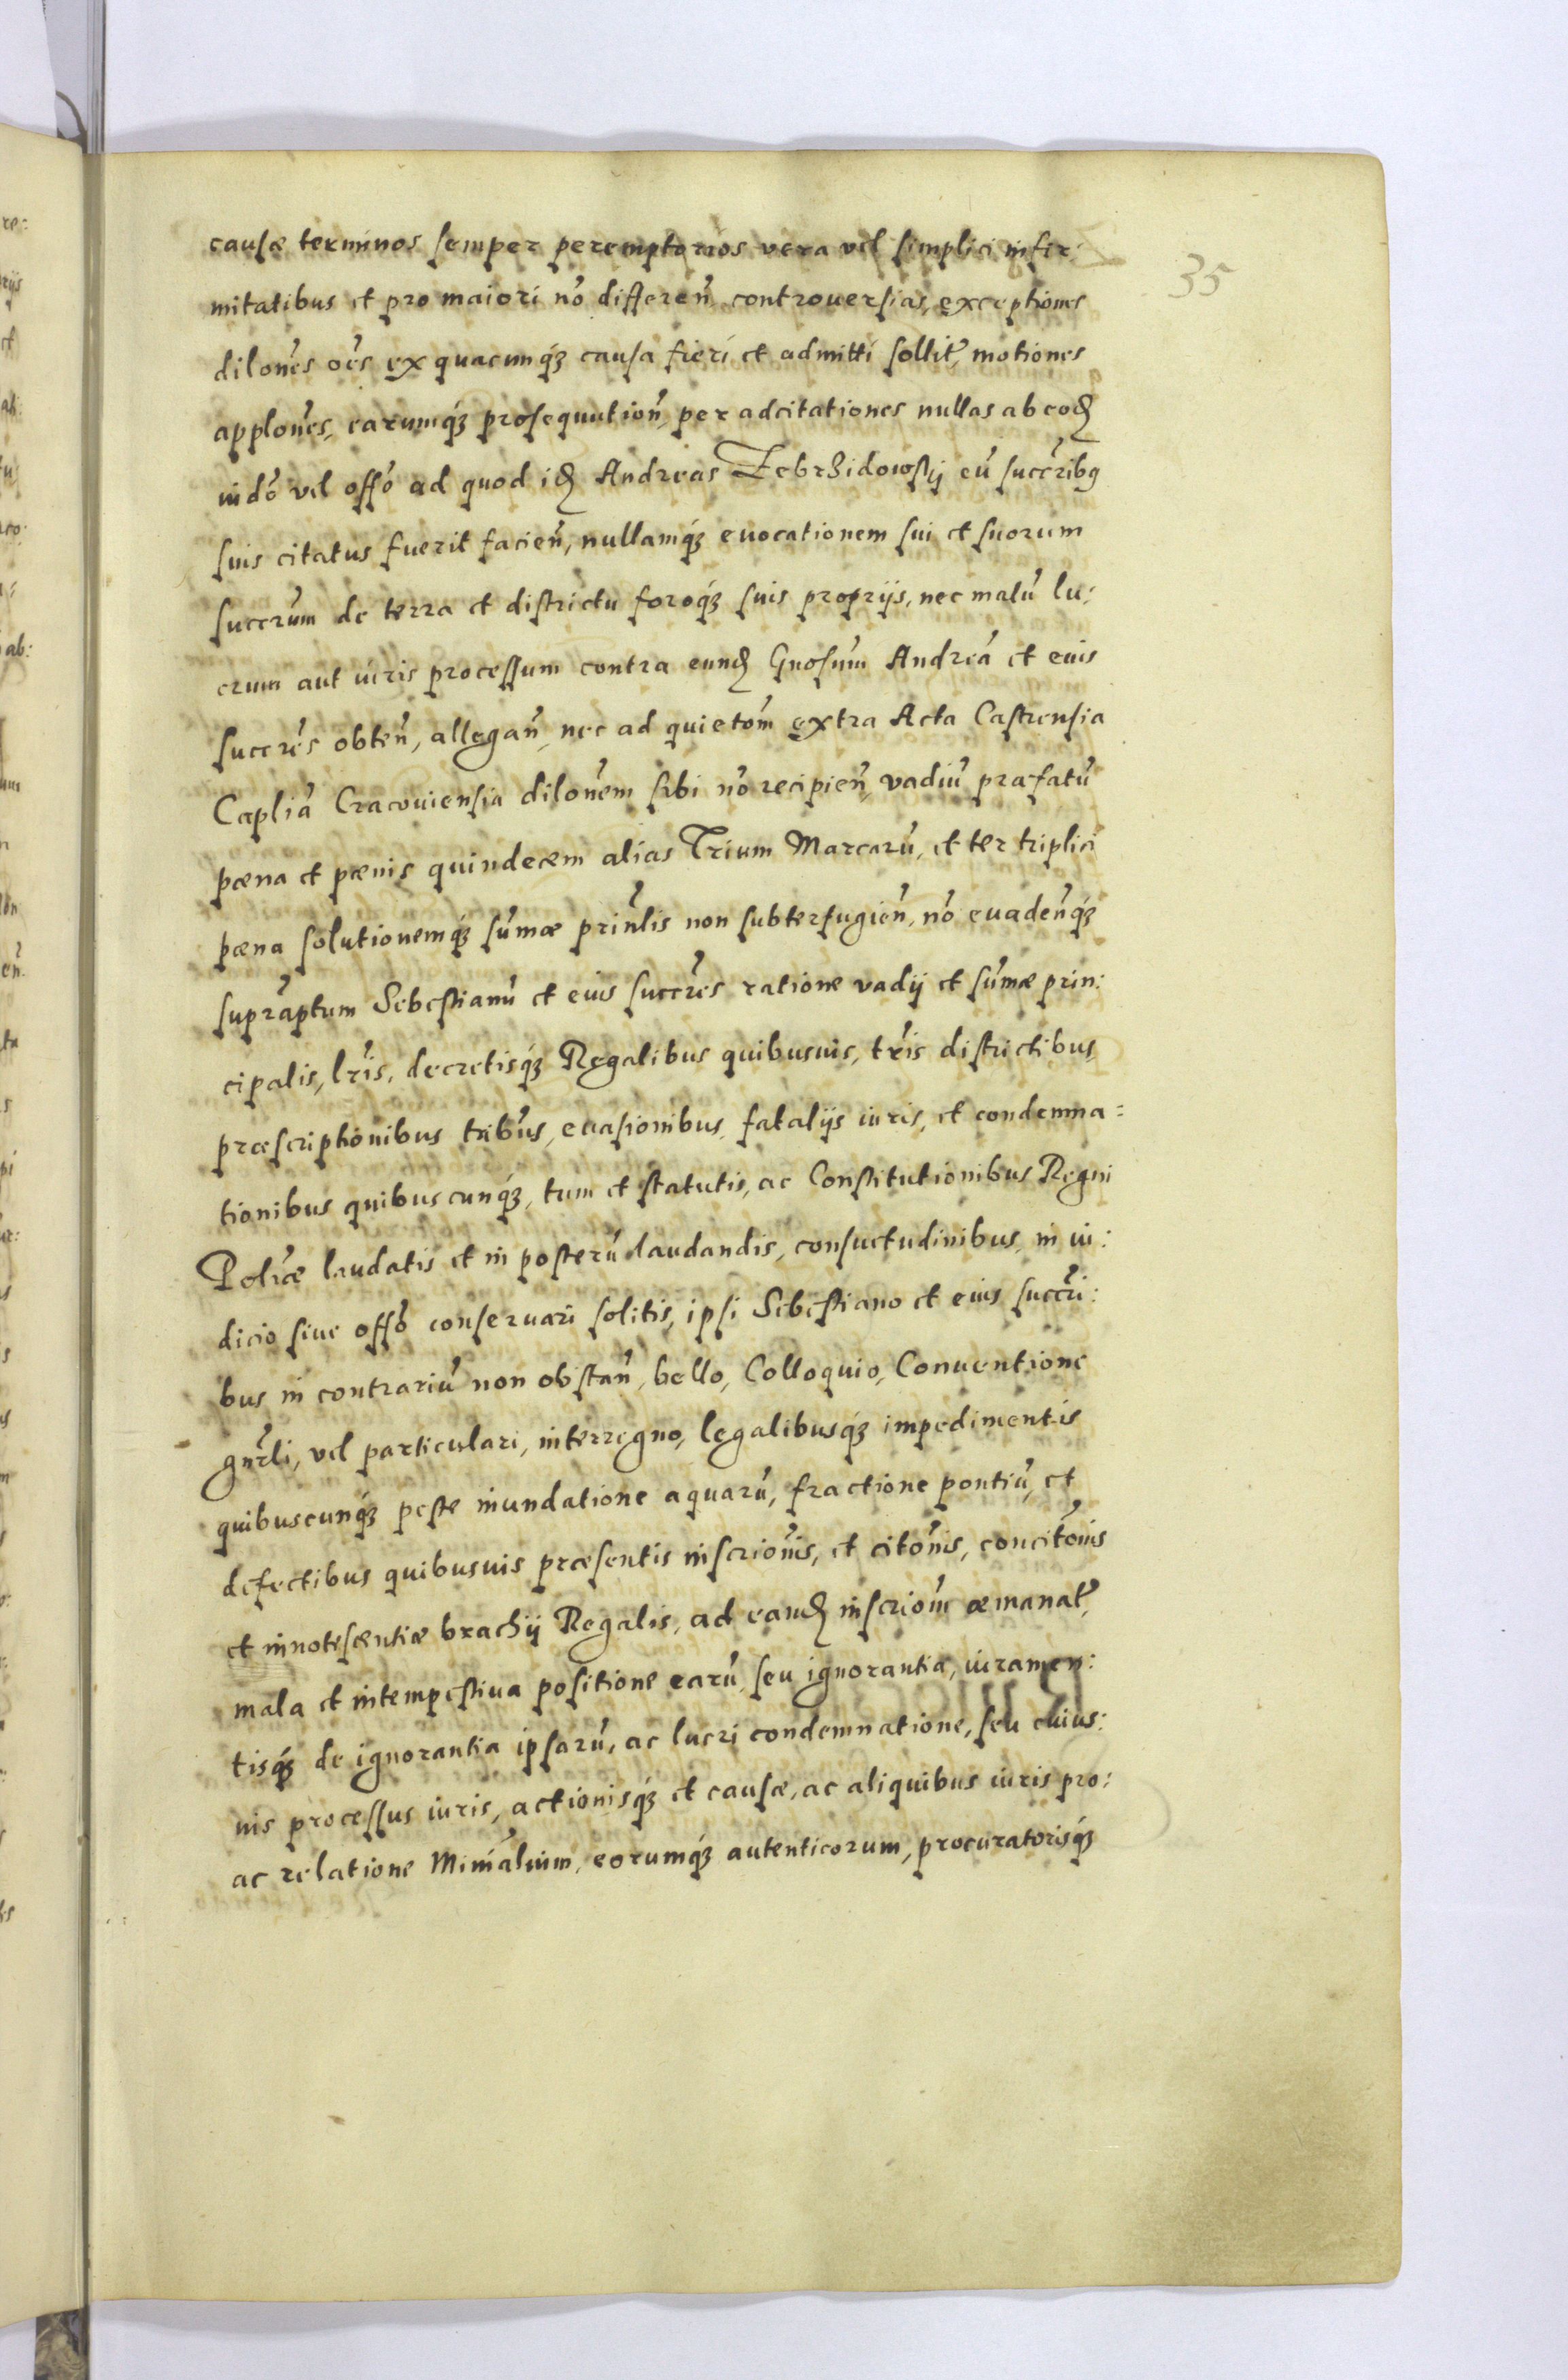 35
causæ terminos semper peremptorios vera vel simplici infir:
mitatibus et pro maiori nō differeñ, controuersias, exceptiones
dilones oēs ex quacunq́ꝫ causa fieri et admitti sollit̃, motiones
applones, earumq́ꝫ prosequutioñ, per adcitationes nullas ab eoꝺ
iudō vel offō ad quod iꝺ Andreas Zebrzidowskij cū succribꝰ
suis citatus fuerit facieñ, nullamq́ꝫ euocationem sui et suorum
succrum de terra et districtu foroq́ꝫ suis proprijs, nec malū lu:
crum aut iuris processum contra eunꝺ Gnosum Andreā et eius
succres obteñ, allegañ, nec ad quietom extra Acta Castrensia
Capliā Cracouiensia dilonem sibi nō recipieñ, vadiū præfatū
pæna et pænis quindecem alias Trium Marcarū, et ter triplici
pæna solutionemq́ꝫ sūmæ prinlis non subterfugieñ, nō euadeñq́ꝫ
supraptum Sebestianū et eius succres ratione vadij et sūmæ prin:
cipalis, lris, decretisq́ꝫ Regalibus quibusuis, tris districtibus,
præscriptionibus tribus, euasionibus, fatalijs iuris, et condemna=
tionibus quibuscunq́ꝫ, tum et statutis, ac Constitutionibus Regni
Poliæ laudatis et in posterū laudandis, consuetudinibus, in iu:
dicio siue offō conseruari solitis, ipsi Sebestiano et eius succri:
bus in contrariū non obstañ, bello, Colloquio, Conuentione
gnrli, vel particulari, interregno, legalibusq́ꝫ impedimentis
quibuscunq́ꝫ peste inundatione aquarū, fractione pontiū, et
defectibus quibusuis præsentis inscrionis, et citonis, concitonis
et innotescentiæ brachij Regalis, ad eanꝺ inscriom æmanat̃,
mala et intempestiua positione earū, seu ignorantia, iuramen:
tisq́ꝫ de ignorantia ipsarū, ac lucri condemnatione, seu cuius:
uis processus iuris, actionisq́ꝫ et causæ, ac aliquibus iuris pro:
ac relatione Minialium, eorumq́ꝫ autenticorum, procuratorisq́ꝫ